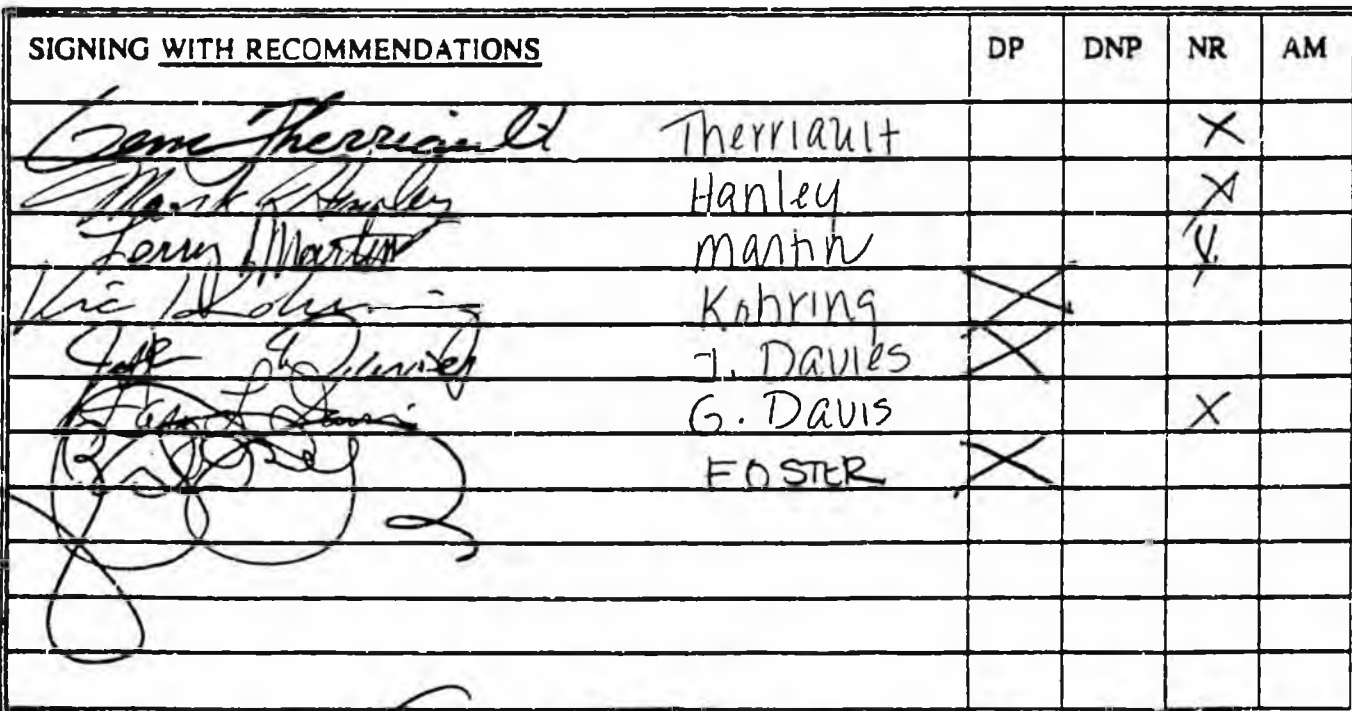 SIGNING WITH RECOMMENDATIONS DP DNP NR AM
Gene Therriault Therriault X
Mark Hanley Hanley X
Terry Martin Martin
Vic Kohring Kohring X
J. Davies X
Gary L Davis G. Davis X
FOSTER X